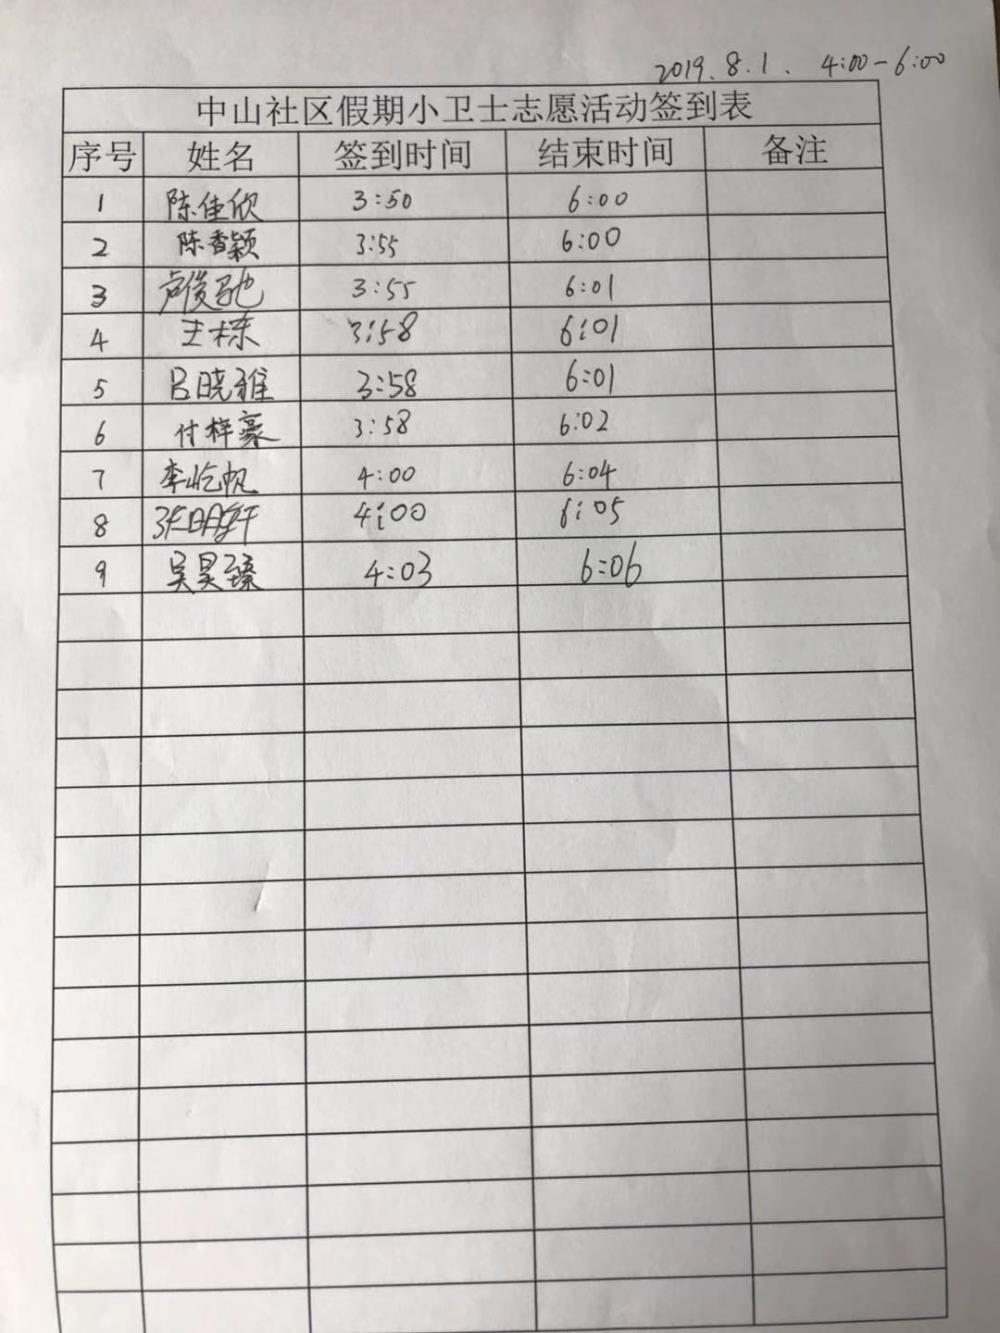 2019.8.1. 4:00-6:00
中山社区假期小卫士志愿活动签到表
序号 姓名 签到时间 结束时间 备注
1 陈佳欣 3:50 6:00
2 陈香颖 3:55 6:00
3 卢俊驰 3:55 6:01
4 王栋 3:58 6:01
5 吕晓雅 3:58 6:01
6 付梓豪 3:58 6:02
7 李屹帆 4:00 6:04
8 张明轩 4:00 6:05
9 吴昊臻 4:03 6:06